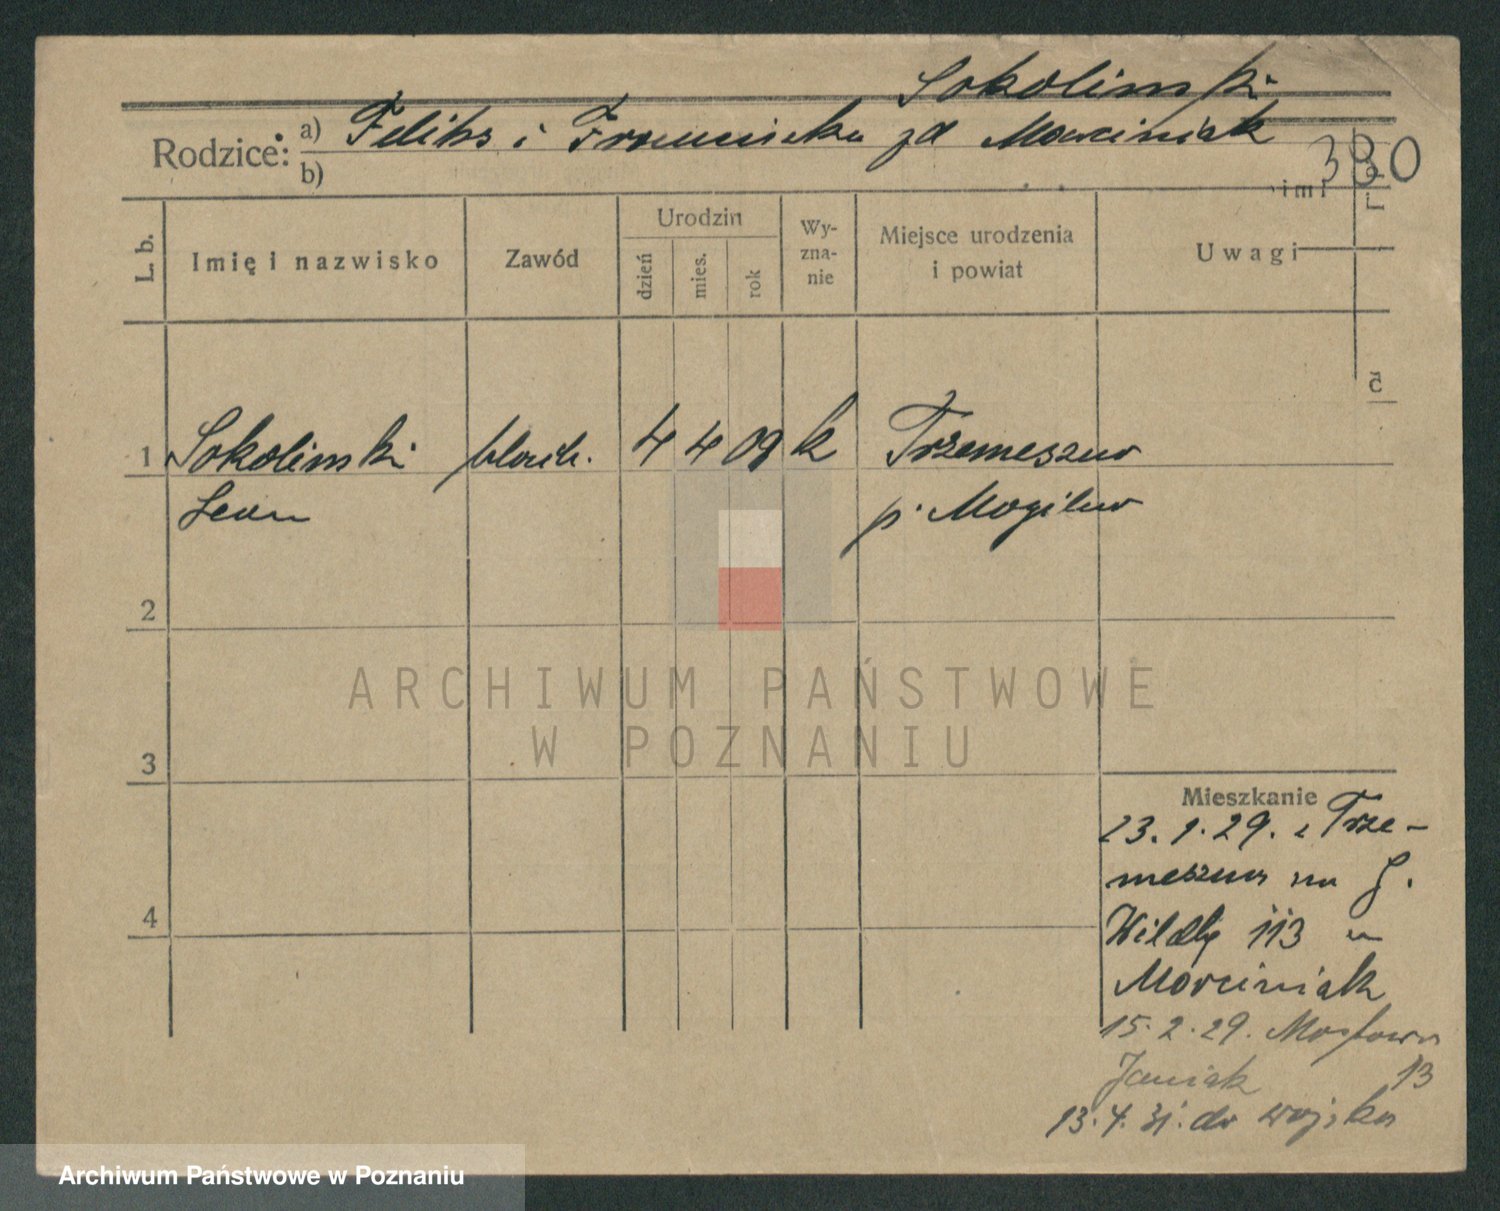 Sokolinski
Rodzice: a) Feliks i Franciszka zd Marciniak
b)
380
imi
L. b.
Imię i nazwisko
Zawód
Urodzin
dzień
mies.
rok
Wy-
zna-
nie
Miejsce urodzenia
i powiat
Uwagi
č
1 Sokolinski blach. 4 4 09 k Trzemeszno
Leon p. Mogilno
2
ARCHIWUM PAŃSTWOWE
W POZNANIU
3
Mieszkanie
23. 1. 29. z Trze-
meszna na G.
4
Wildę 113 u
Marciniak
15. 2. 29. Mostowa
Janiak 13
13. 4. 31. do wojska
Archiwum Państwowe w Poznaniu